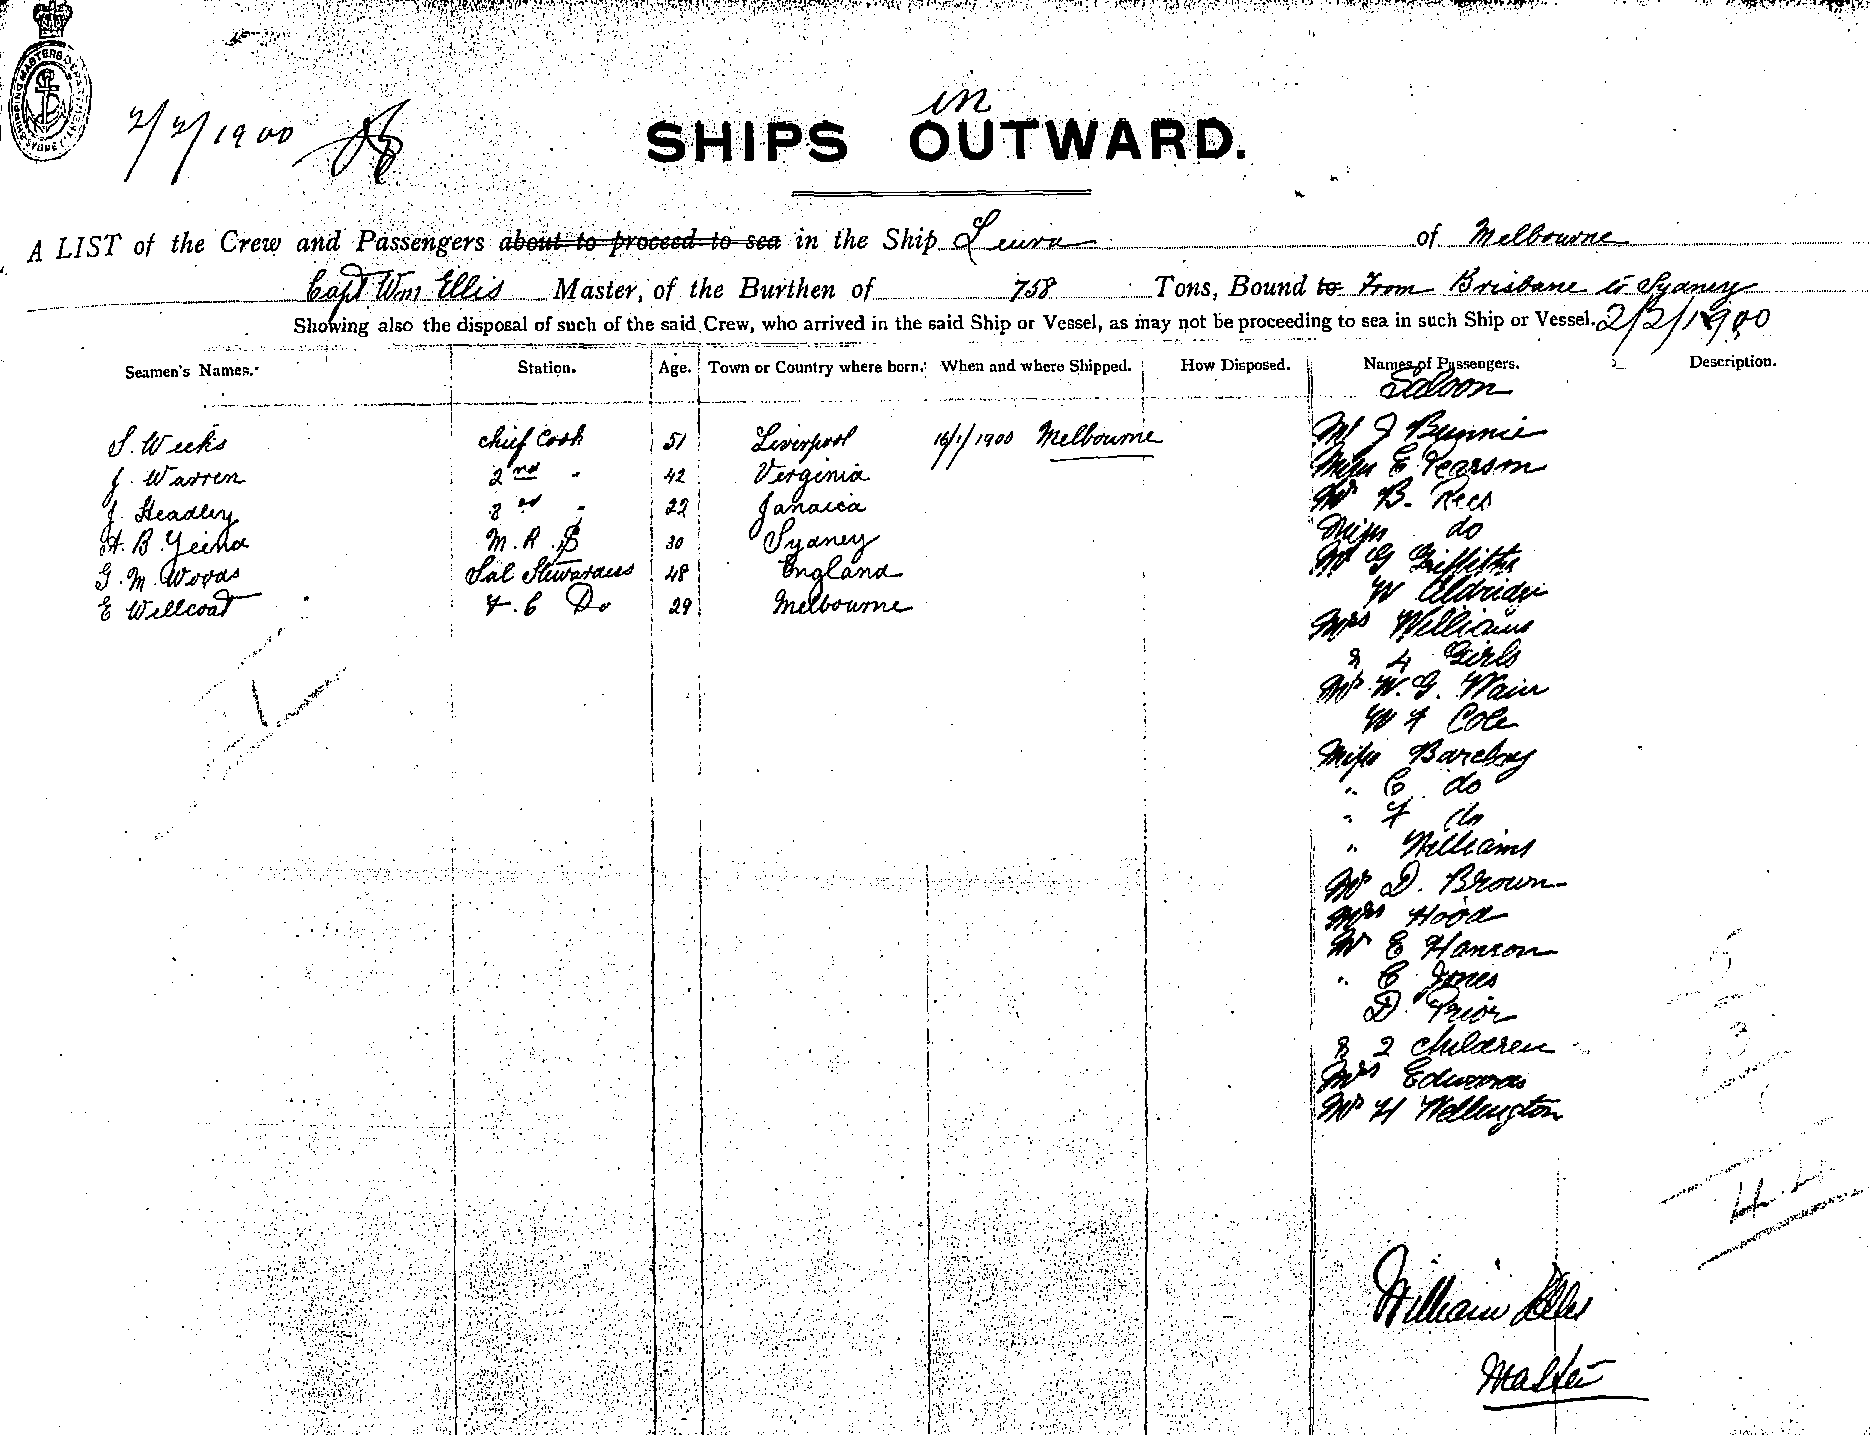 2/2/1900
in
SHIPS OUTWARD.
A LIST of the Crew and Passengers about to proceed to sea in the Ship Leura of Melbourne
Capt Wm Ellis Master, of the Burthen of 758 Tons, Bound to From Brisbane to Sydney
Showing also the disposal of such of the said Crew, who arrived in the said Ship or Vessel, as may not be proceeding to sea in such Ship or Vessel. 2/2/1900
Seamen's Names. Station. Age. Town or Country where born. When and where Shipped. How Disposed. Names of Passengers. Description.
Saloon
S. Weeks chief Cook 51 Liverpool 16/1/1900 Melbourne Mr J Bunnie
J. Warren 2nd " 42 Virginia Miss E. Pearson
J. Headley 3rd " 22 Jamaica Mr B. Rees
H. B. M. R. S 30 Sydney Miss do
G. M. Woods Sal Stewardess 48 England Mr G Griffiths
W Aldridge
E Willcoat F. C Do 29 Melbourne
Mrs Williams
& 4 Girls
Mr W. G. Wain
W F Cole
Miss Barclay
" C. do
" F do
" Williams
Mr D. Brown
Mrs Hood
Mr E Hanson
" C Jones
D. Prior
& 2 children
Mrs Edwards
Mr H Wellington
William Ellis
Master